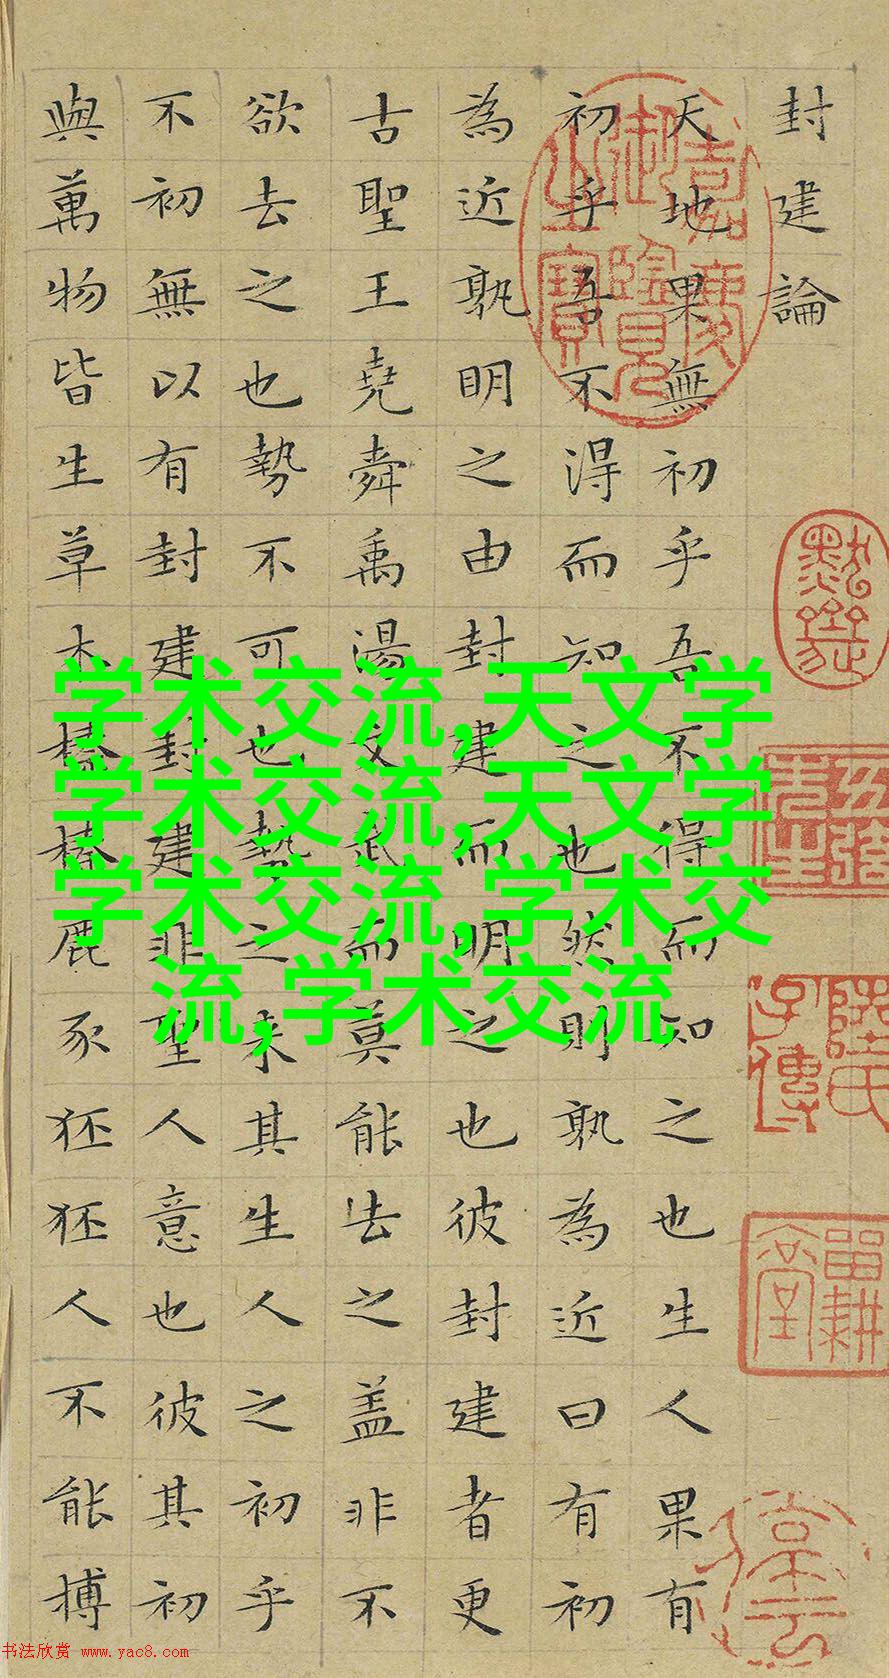 封建論
天地果無初乎吾不得而知之也生人果有
初乎吾不淂而知之也然則孰為近曰有初
為近孰明之由封建而明之也彼封建者更
古聖王堯舜禹湯文武而莫能去之盖非不
欲去之也勢不可也勢之来其生人之初乎
不初無以有封建封建非聖人意也彼其初
與萬物皆生草木榛榛鹿豕狉狉人不能搏
嘉慶御覽之寶
陸氏子傳
畱耕堂
学术交流,天文学
学术交流,天文学
学术交流,学术交
流,学术交流
书法欣赏 www.yac8.com